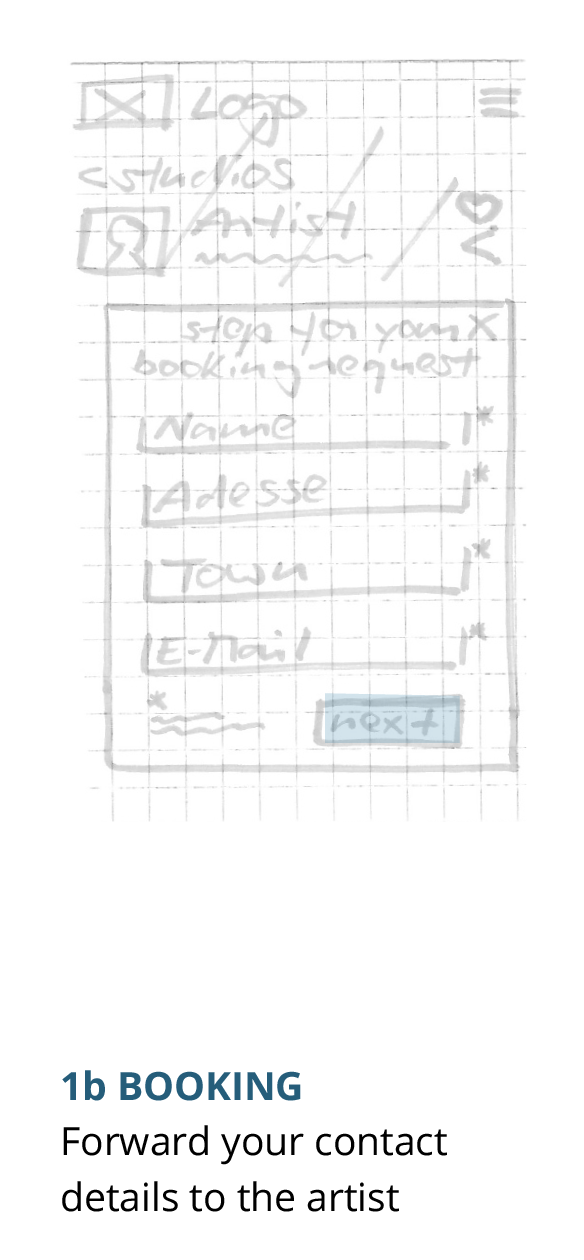 Logo
< studios
Artist
step for your X
booking request
Name *
Adesse *
Town *
E-Mail *
*
next
1b BOOKING
Forward your contact
details to the artist